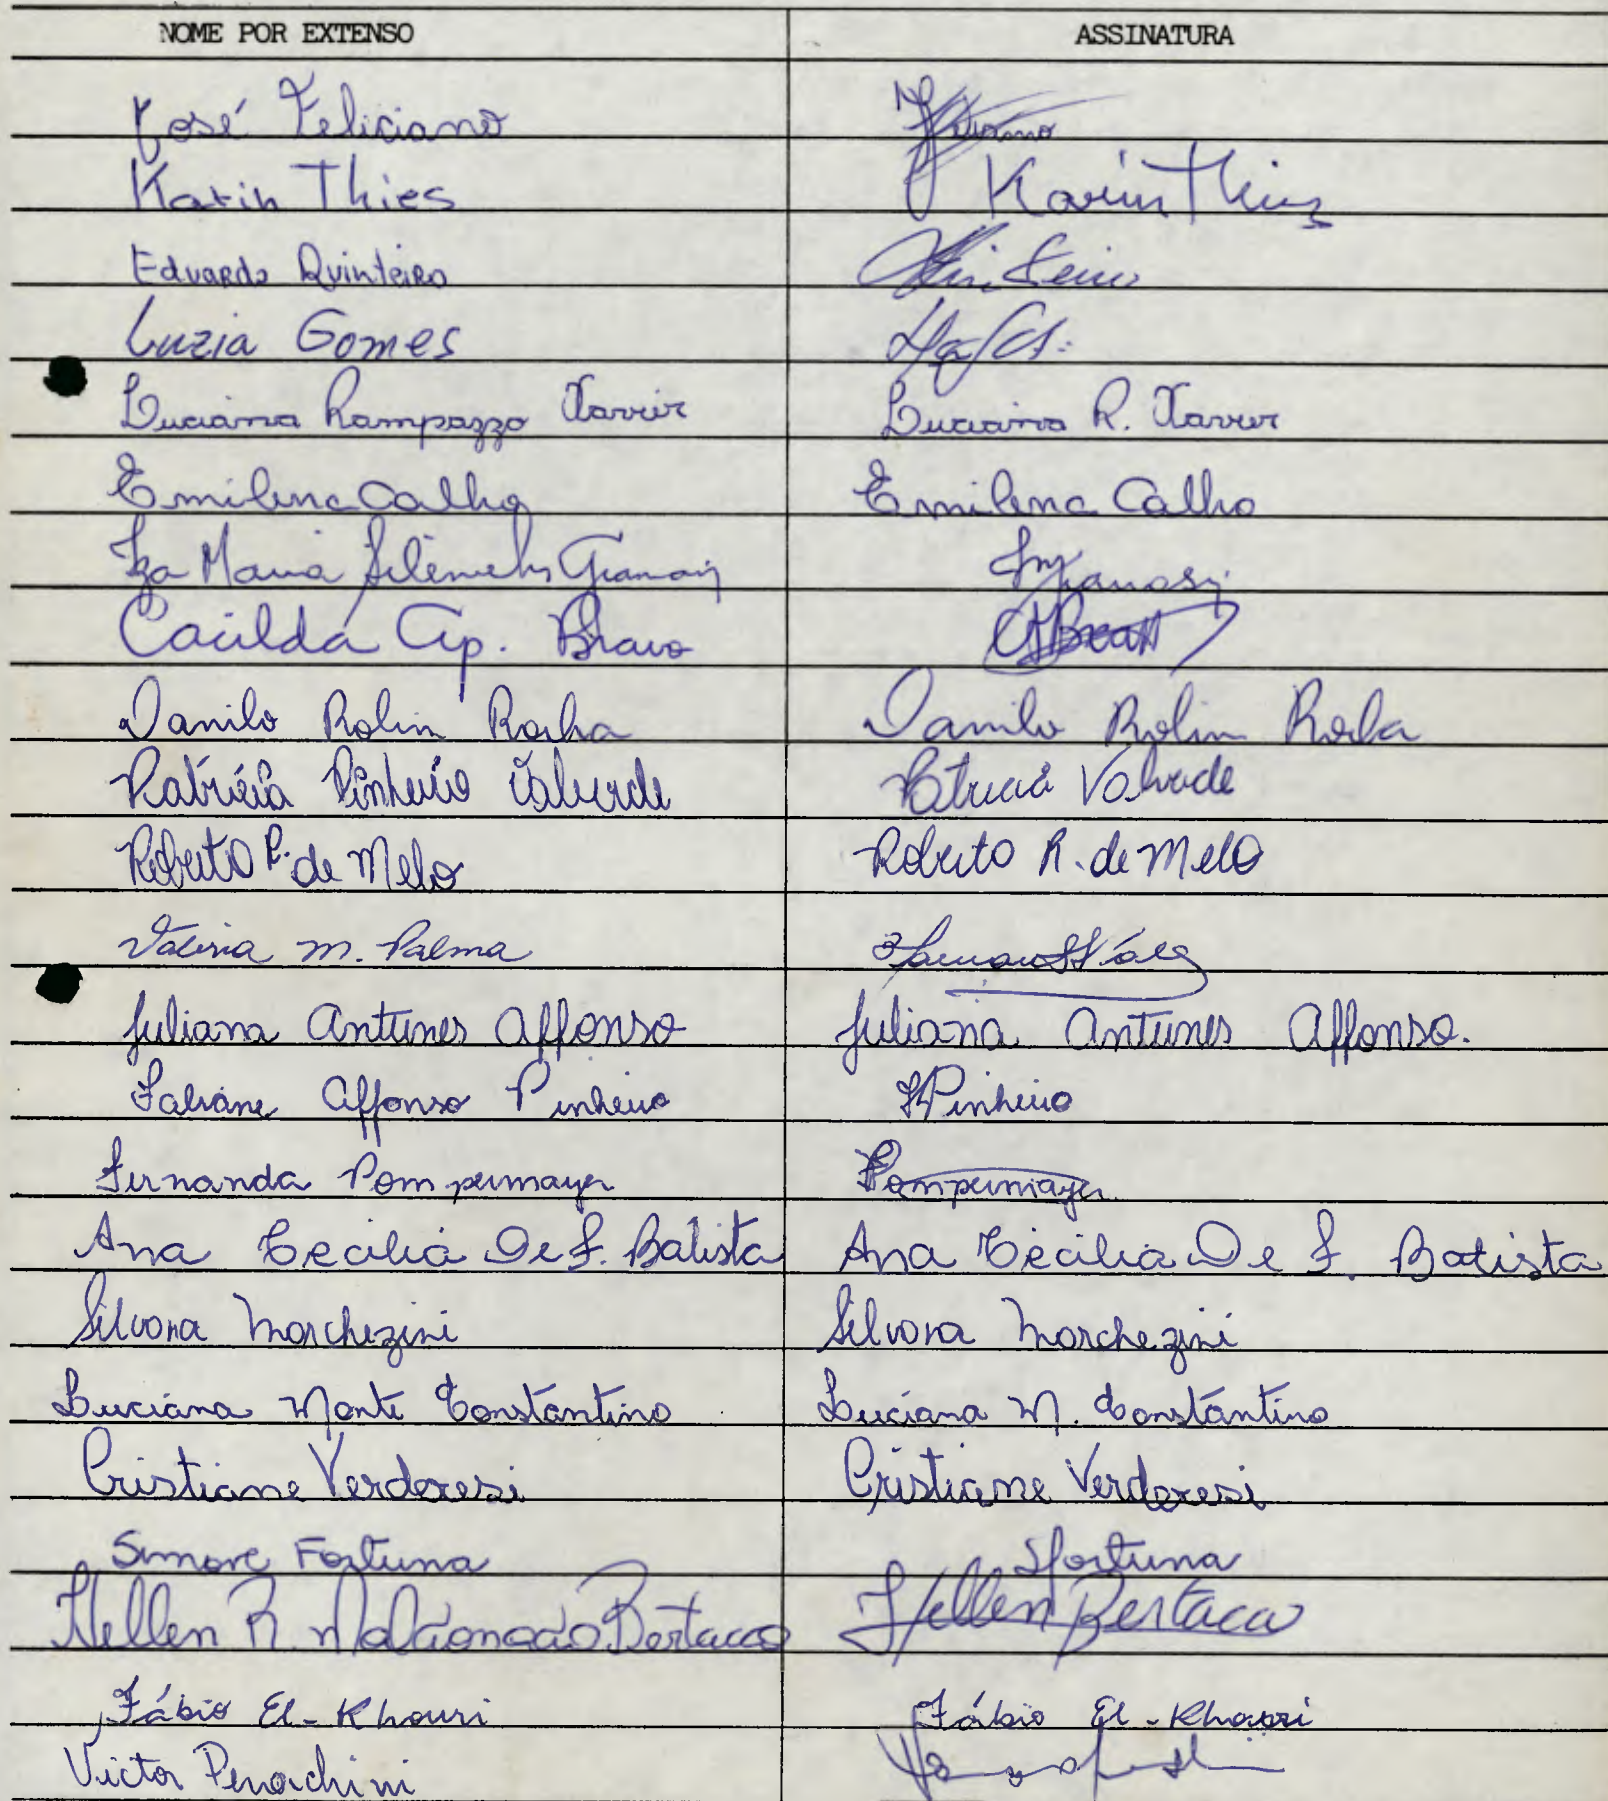 NOME POR EXTENSO ASSINATURA
José Feliciano
Karin Thies Karin Thies
Eduardo Quinteiro Quinteiro
Luzia Gomes
Luciana Rampazzo Xavier Luciana R. Xavier
Emilena Calho Emilena Calho
Iza Maria
Cacilda Ap. Bravo
Danilo Rolin Rocha Danilo Rolin Rocha
Patrícia Pinheiro Valverde Patricia Valverde
Roberto R. de Melo Roberto R. de Melo
Valéria M. Palma
Juliana Antunes Affonso Juliana Antunes Affonso.
Fabiane Affonso Pinheiro FAPinheiro
Fernanda Pompermayer Pompermayer
Ana Cecilia De F. Batista Ana Cecilia De F. Batista
Silvana Marchezini Silvana Marchezini
Luciana Monte Constantino Luciana M. Constantino
Cristiane Verderesi Cristiane Verderesi
Simone Fortuna SFortuna
Hellen R. Maldonado Bertacco Hellen Bertacco
Fábio El-Khouri Fábio El-Khouri
Victor Penachini